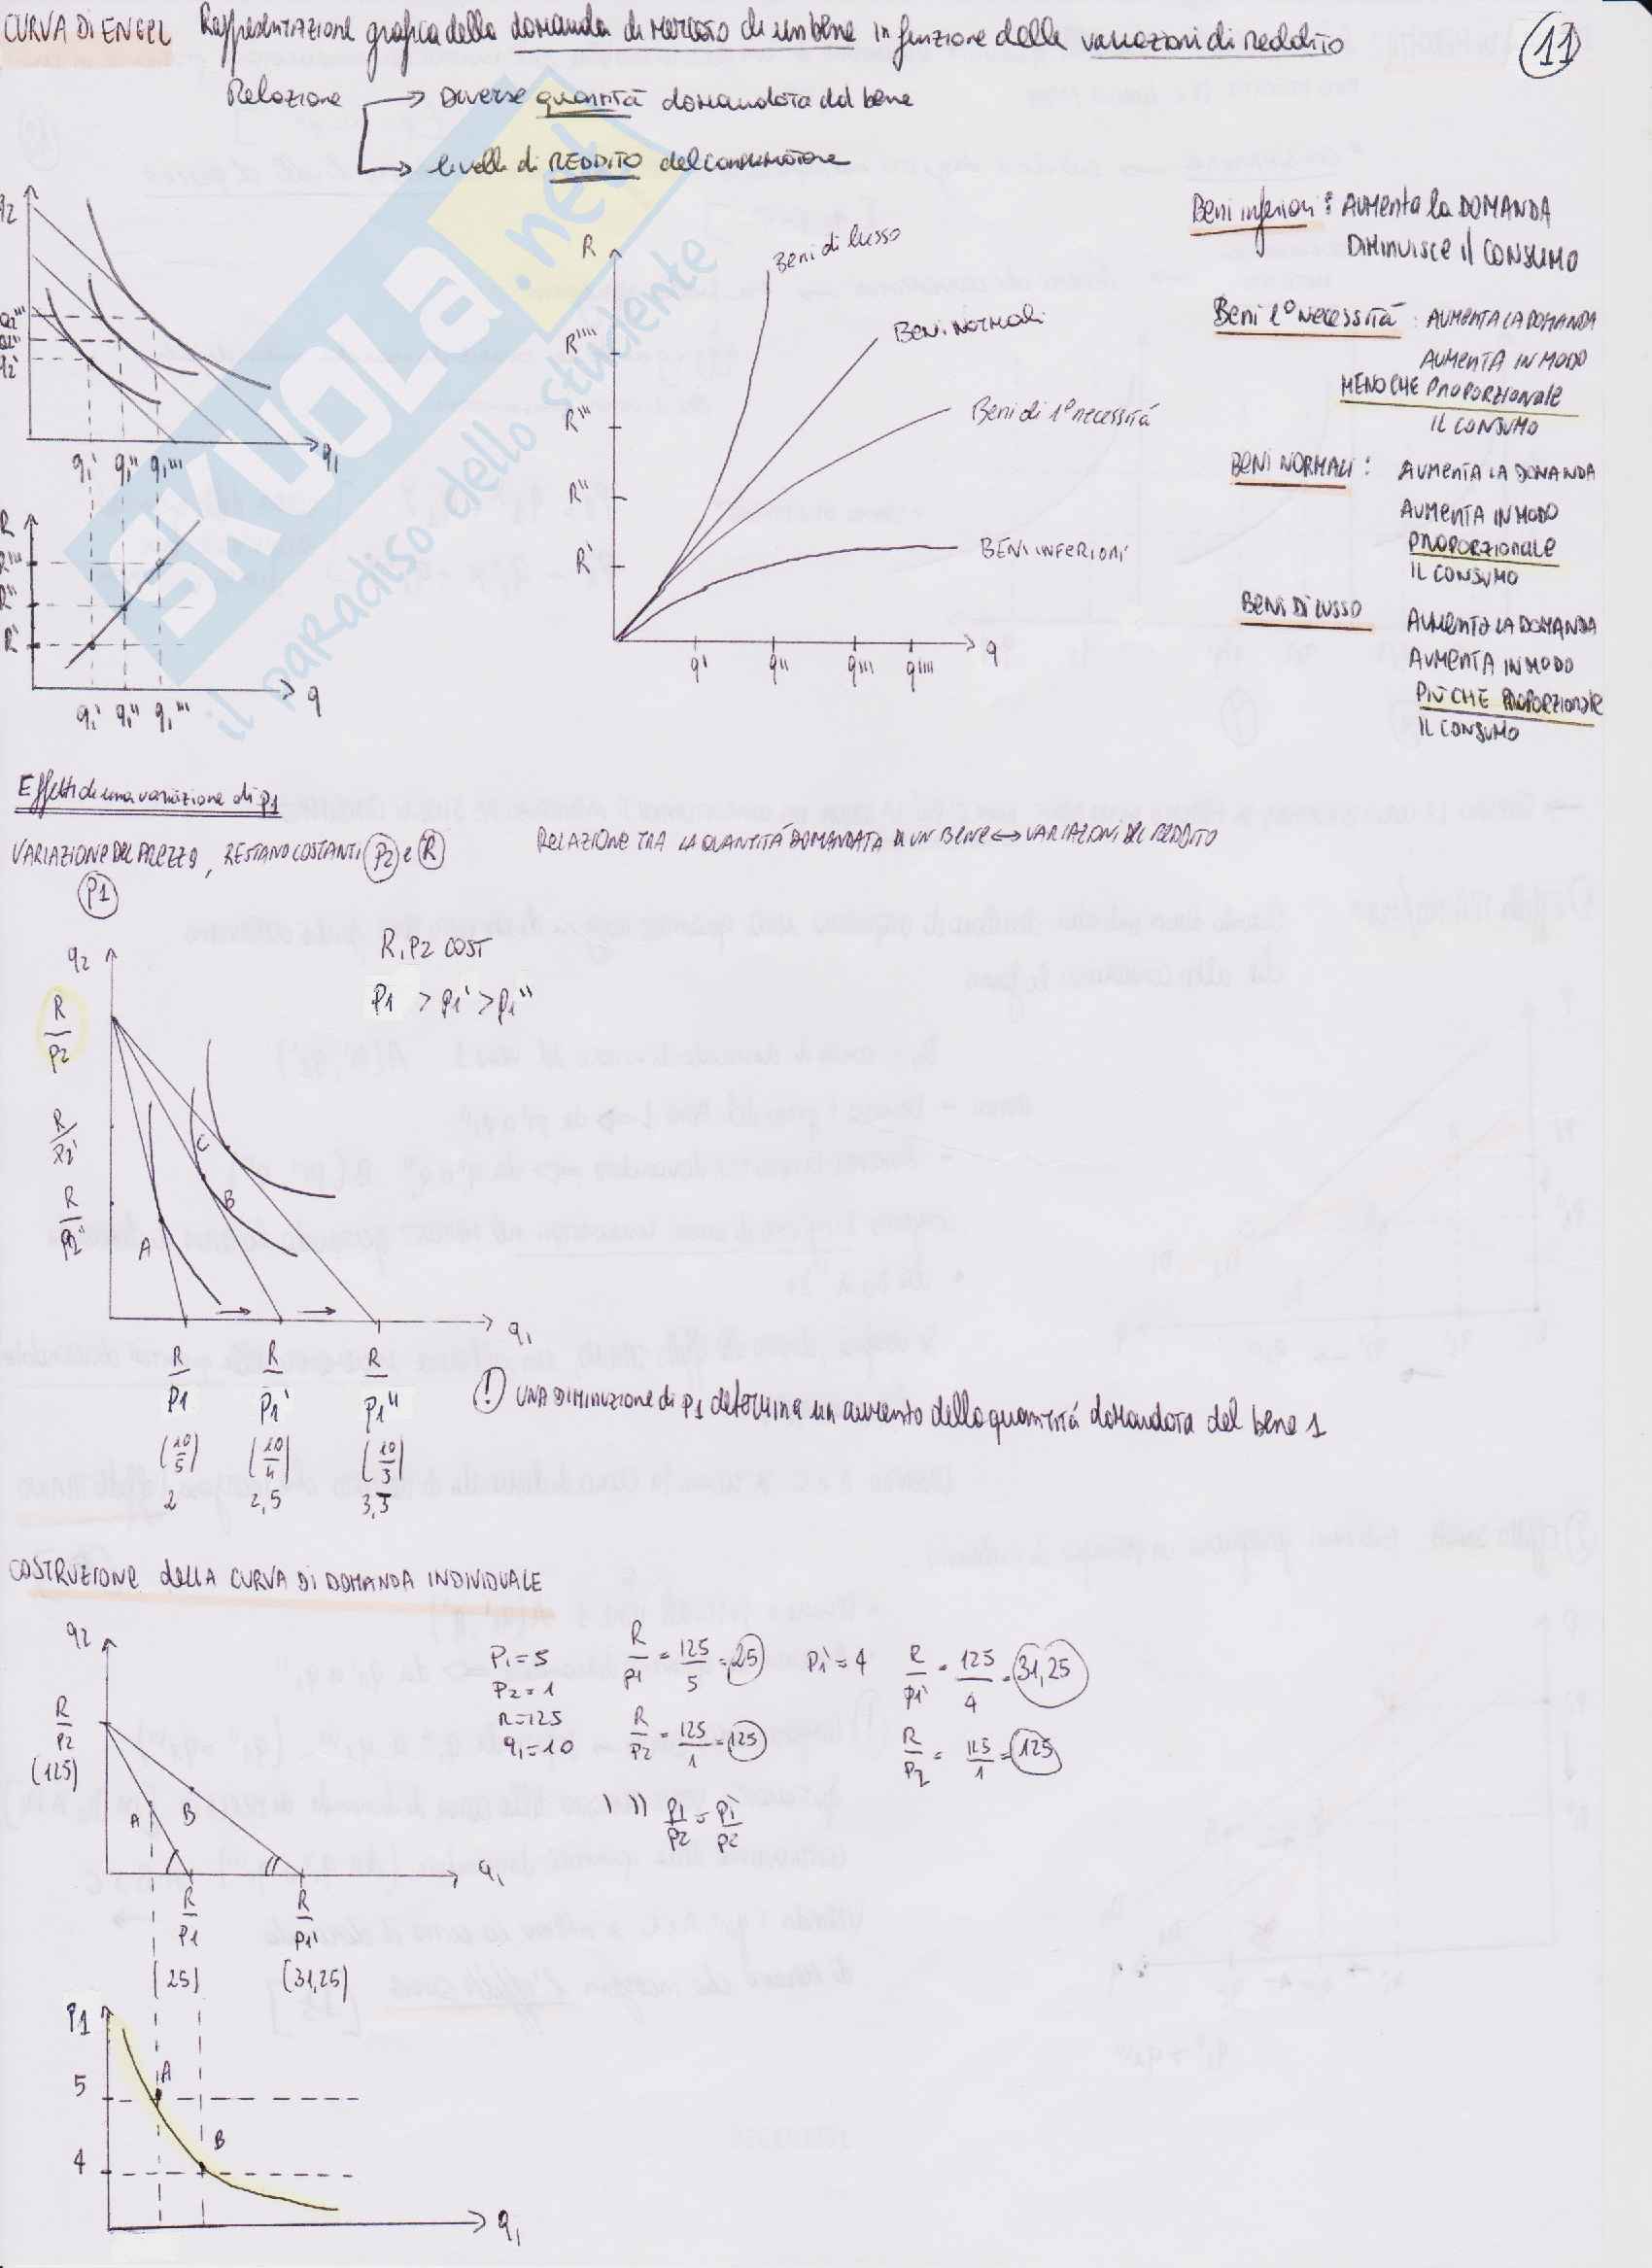 CURVA DI ENGEL Rappresentazione grafica della domanda di mercato di un bene in funzione delle variazioni di reddito
11
Relazione → Diverse quantità domandata del bene
→ livelli di REDDITO del consumatore
q2
q2'''
q2''
q2'
q1
q1' q1'' q1'''
R
R'''
R''
R'
q
q1' q1'' q1'''
R
R''''
R'''
R''
R'
Beni di lusso
Beni normali
Beni di 1° necessitá
BENI INFERIORI
q
q' q'' q''' q''''
Beni inferiori: AUMENTA la DOMANDA
DIMINUISCE il CONSUMO
Beni 1° necessità: AUMENTA LA DOMANDA
AUMENTA IN MODO
MENO CHE PROPORZIONALE
IL CONSUMO
BENI NORMALI: AUMENTA LA DOMANDA
AUMENTA IN MODO
PROPORZIONALE
IL CONSUMO
BENI DI LUSSO AUMENTA LA DOMANDA
AUMENTA IN MODO
PIÙ CHE PROPORZIONALE
IL CONSUMO
SKUOLA.net
il paradiso dello studente
Effetti di una variazione di P1
VARIAZIONE DEL PREZZO, RESTANO COSTANTI P2 e R
P1
RELAZIONE TRA LA QUANTITÁ DOMANDATA DI UN BENE ↔ VARIAZIONI DEL REDDITO
R, P2 COST
P1 > P1' > P1''
q2
R/P2
R/P2'
R/P2''
A
B
C
q1
R/P1 R/P1' R/P1''
(10/5) (10/4) (10/3)
2 2,5 3,3
! UNA DIMINUZIONE di P1 determina un aumento della quantitá domandata del bene 1
COSTRUZIONE DELLA CURVA DI DOMANDA INDIVIDUALE
q2
R/P2
(125)
A
B
q1
R/P1 R/P1'
(25) (31,25)
P1=5
P2=1
R=125
q1=10
R/P1 = 125/5 = 25
R/P2 = 125/1 = 125
P1'=4
R/P1' = 125/4 = 31,25
R/P2 = 125/1 = 125
P1/P2 = P1'/P2
P1
5
4
A
B
q1